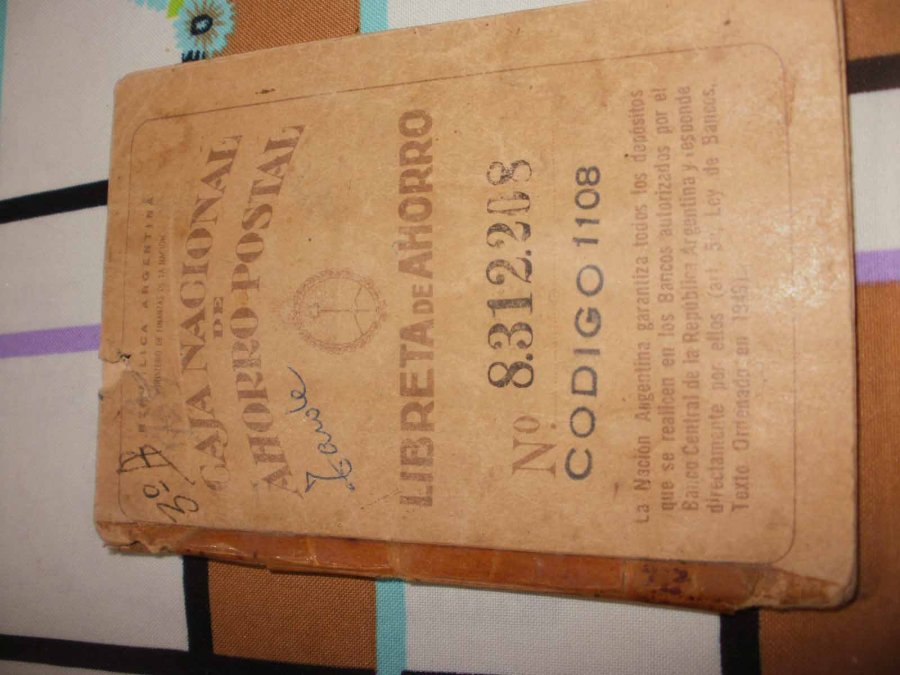 3º A
REPUBLICA ARGENTINA
MINISTERIO DE FINANZAS DE LA NACION
CAJA NACIONAL
DE
AHORRO POSTAL
Tarde
LIBRETA DE AHORRO
Nº 8.312.208
CODIGO 1108
La Nación Argentina garantiza todos los depósitos
que se realicen en los Bancos autorizados por el
Banco Central de la República Argentina y responde
directamente por ellos (art. 5º, Ley de Bancos,
Texto Ordenado en 1949).